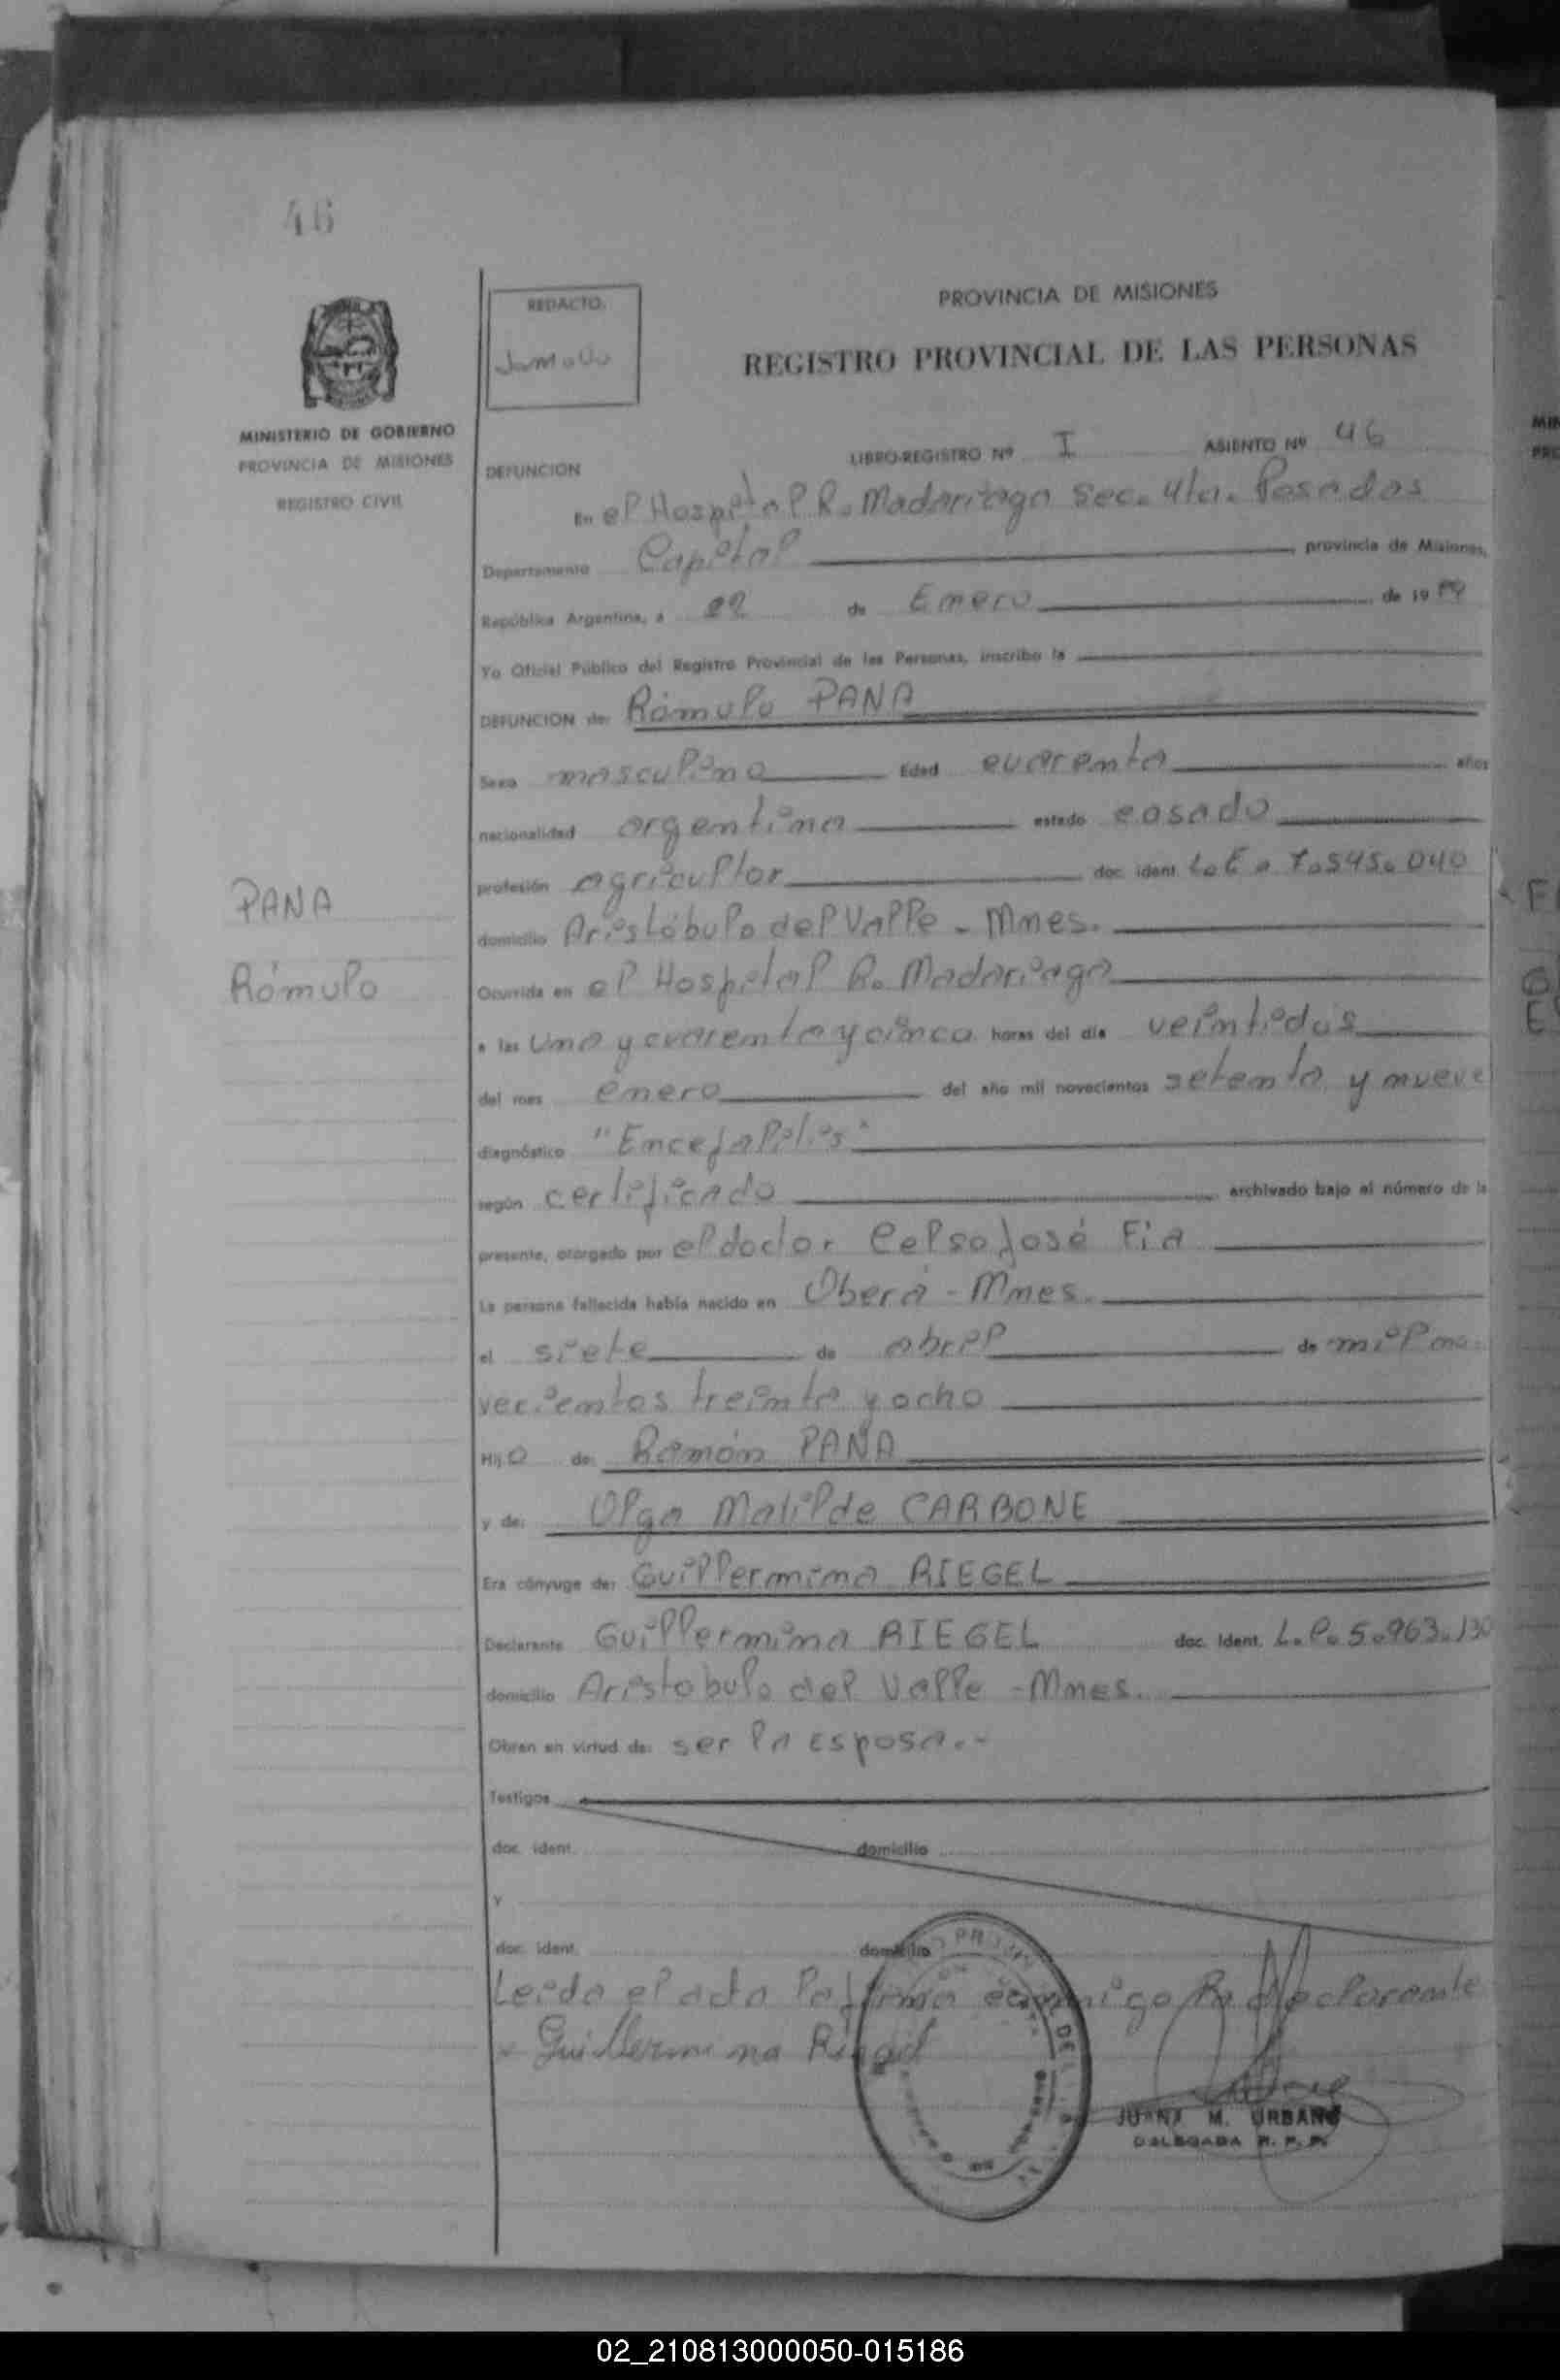 46
REDACTO.
PROVINCIA DE MISIONES
REGISTRO PROVINCIAL DE LAS PERSONAS
MINISTERIO DE GOBIERNO
PROVINCIA DE MISIONES
REGISTRO CIVIL
LIBRO-REGISTRO Nº I ASIENTO Nº 46
DEFUNCION
En el Hospital R. Madariaga Sec. 4ta. Posadas
Departamento Capital provincia de Misiones,
República Argentina, a 22 de Enero de 19 79
Yo Oficial Público del Registro Provincial de las Personas, inscribo la
DEFUNCION de: Rómulo PANA
Sexo masculino Edad cuarenta años
nacionalidad argentina estado casado
profesión agricultor doc. ident. L.E. 7.545.040
PANA
domicilio Aristóbulo del Valle - Mnes.
Rómulo
Ocurrida en el Hospital R. Madariaga
a las Una y cuarenta y cinco horas del día veintidos
del mes enero del año mil novecientos setenta y nueve
diagnóstico "Encefalitis"
según certificado archivado bajo el número de la
presente, otorgado por el doctor Celso José Fia
La persona fallecida había nacido en Oberá - Mnes.
el siete de abril de mil no-
vecientos treinta y ocho
Hijo de: Ramón PANA
y de: Olga Matilde CARBONE
Era cónyuge de: Guillermina RIEGEL
Declarante Guillermina RIEGEL doc. Ident. L.C. 5.963.130
domicilio Aristobulo del Valle - Mnes.
Obran en virtud de: ser la esposa.-
Testigos
doc. ident. domicilio
y
doc. ident. domicilio
Leida el acta la firma conmigo la declarante
Guillermina
JUANA M. URBANO
DELEGADA R. P. P.
02_210813000050-015186